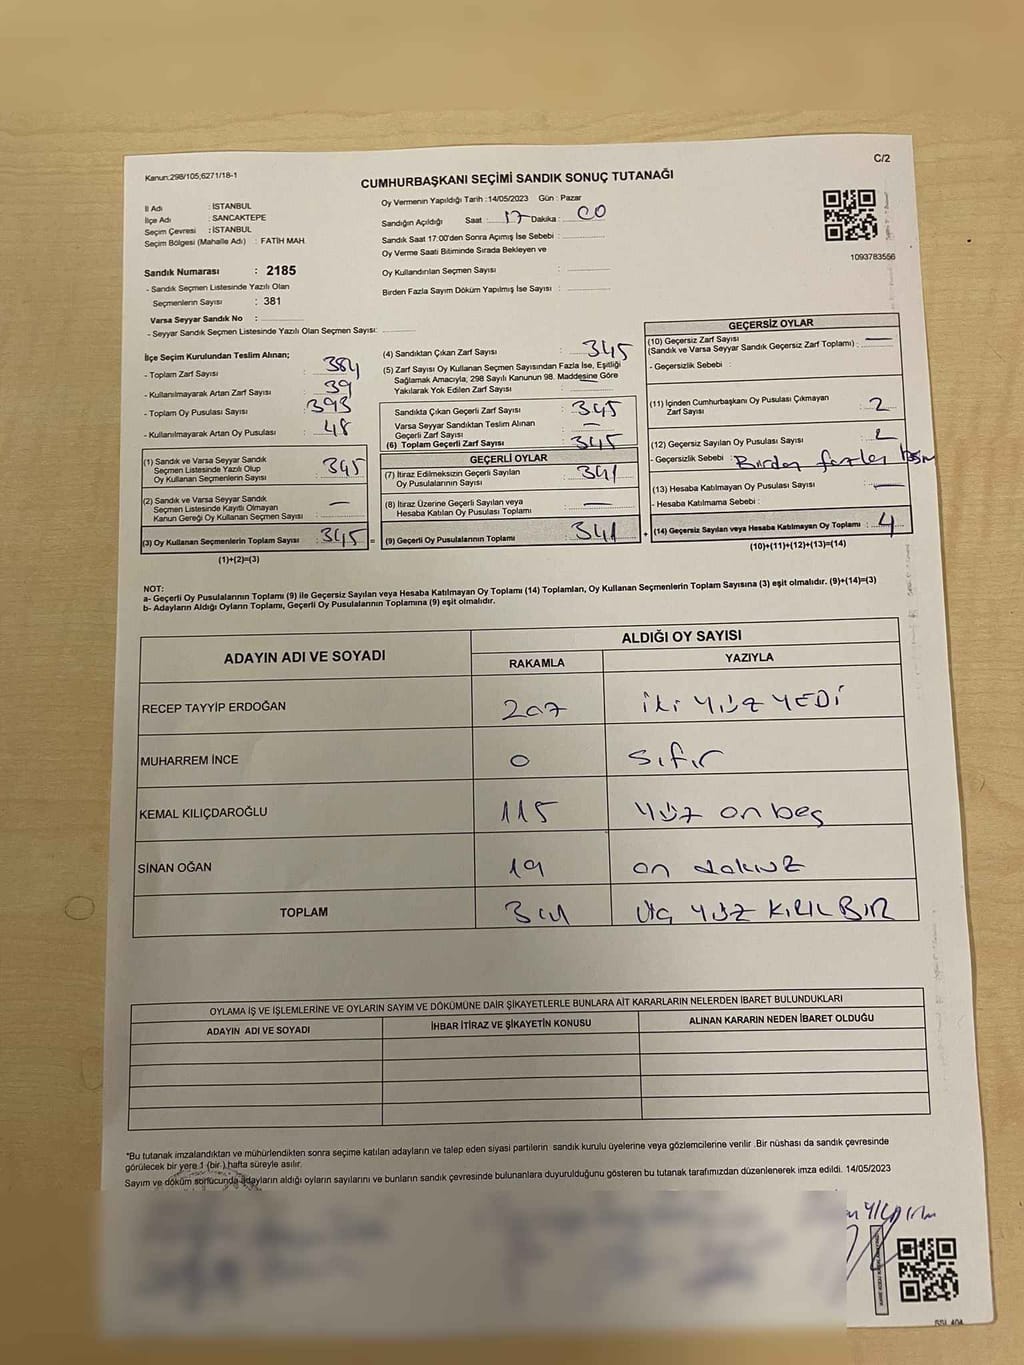 C/2
Kanun:298/105;6271/18-1
CUMHURBAŞKANI SEÇİMİ SANDIK SONUÇ TUTANAĞI
İl Adı : İSTANBUL
İlçe Adı : SANCAKTEPE
Seçim Çevresi : İSTANBUL
Seçim Bölgesi (Mahalle Adı) : FATİH MAH.
Oy Vermenin Yapıldığı Tarih :14/05/2023 Gün : Pazar
Sandığın Açıldığı Saat : 17 Dakika : 00
Sandık Saat 17:00'den Sonra Açımış İse Sebebi :
Oy Verme Saati Bitiminde Sırada Bekleyen ve
Oy Kullandırılan Seçmen Sayısı :
Birden Fazla Sayım Döküm Yapılmış İse Sayısı :
1093783556
Sandık Numarası : 2185
- Sandık Seçmen Listesinde Yazılı Olan
Seçmenlerin Sayısı : 381
Varsa Seyyar Sandık No :
- Seyyar Sandık Seçmen Listesinde Yazılı Olan Seçmen Sayısı:
İlçe Seçim Kurulundan Teslim Alınan;
- Toplam Zarf Sayısı : 384
- Kullanılmayarak Artan Zarf Sayısı : 39
- Toplam Oy Pusulası Sayısı : 393
- Kullanılmayarak Artan Oy Pusulası : 48
(1) Sandık ve Varsa Seyyar Sandık
Seçmen Listesinde Yazılı Olup
Oy Kullanan Seçmenlerin Sayısı : 345
(2) Sandık ve Varsa Seyyar Sandık
Seçmen Listesinde Kayıtlı Olmayan
Kanun Gereği Oy Kullanan Seçmen Sayısı : —
(3) Oy Kullanan Seçmenlerin Toplam Sayısı : 345 =
(1)+(2)=(3)
(4) Sandıktan Çıkan Zarf Sayısı : 345
(5) Zarf Sayısı Oy Kullanan Seçmen Sayısından Fazla İse, Eşitliği
Sağlamak Amacıyla; 298 Sayılı Kanunun 98. Maddesine Göre
Yakılarak Yok Edilen Zarf Sayısı : —
Sandıkta Çıkan Geçerli Zarf Sayısı : 345
Varsa Seyyar Sandıktan Teslim Alınan
Geçerli Zarf Sayısı : —
(6) Toplam Geçerli Zarf Sayısı : 345
GEÇERLİ OYLAR
(7) İtiraz Edilmeksizin Geçerli Sayılan
Oy Pusulalarının Sayısı : 341
(8) İtiraz Üzerine Geçerli Sayılan veya
Hesaba Katılan Oy Pusulası Toplamı : —
(9) Geçerli Oy Pusulalarının Toplamı : 341 +
GEÇERSİZ OYLAR
(10) Geçersiz Zarf Sayısı
(Sandık ve Varsa Seyyar Sandık Geçersiz Zarf Toplamı) : —
- Geçersizlik Sebebi :
(11) İçinden Cumhurbaşkanı Oy Pusulası Çıkmayan
Zarf Sayısı : 2
(12) Geçersiz Sayılan Oy Pusulası Sayısı : 2
- Geçersizlik Sebebi : Birden fazla
(13) Hesaba Katılmayan Oy Pusulası Sayısı : —
- Hesaba Katılmama Sebebi :
(14) Geçersiz Sayılan veya Hesaba Katılmayan Oy Toplamı : 4
(10)+(11)+(12)+(13)=(14)
NOT:
a- Geçerli Oy Pusulalarının Toplamı (9) ile Geçersiz Sayılan veya Hesaba Katılmayan Oy Toplamı (14) Toplamları, Oy Kullanan Seçmenlerin Toplam Sayısına (3) eşit olmalıdır. (9)+(14)=(3)
b- Adayların Aldığı Oyların Toplamı, Geçerli Oy Pusulalarının Toplamına (9) eşit olmalıdır.
ADAYIN ADI VE SOYADI ALDIĞI OY SAYISI
RAKAMLA YAZIYLA
RECEP TAYYİP ERDOĞAN 207 iki YÜZ YEDİ
MUHARREM İNCE 0 sıfır
KEMAL KILIÇDAROĞLU 115 Yüz on beş
SİNAN OĞAN 19 on dokuz
TOPLAM 341 üç YÜZ KIRK BİR
OYLAMA İŞ VE İŞLEMLERİNE VE OYLARIN SAYIM VE DÖKÜMÜNE DAİR ŞİKAYETLERLE BUNLARA AİT KARARLARIN NELERDEN İBARET BULUNDUKLARI
ADAYIN ADI VE SOYADI İHBAR İTİRAZ VE ŞİKAYETİN KONUSU ALINAN KARARIN NEDEN İBARET OLDUĞU
*Bu tutanak imzalandıktan ve mühürlendikten sonra seçime katılan adayların ve talep eden siyasi partilerin sandık kurulu üyelerine veya gözlemcilerine verilir .Bir nüshası da sandık çevresinde
görülecek bir yere 1 (bir ) hafta süreyle asılır.
Sayım ve döküm sonucunda adayların aldığı oyların sayılarını ve bunların sandık çevresinde bulunanlara duyurulduğunu gösteren bu tutanak tarafımızdan düzenlenerek imza edildi. 14/05/2023